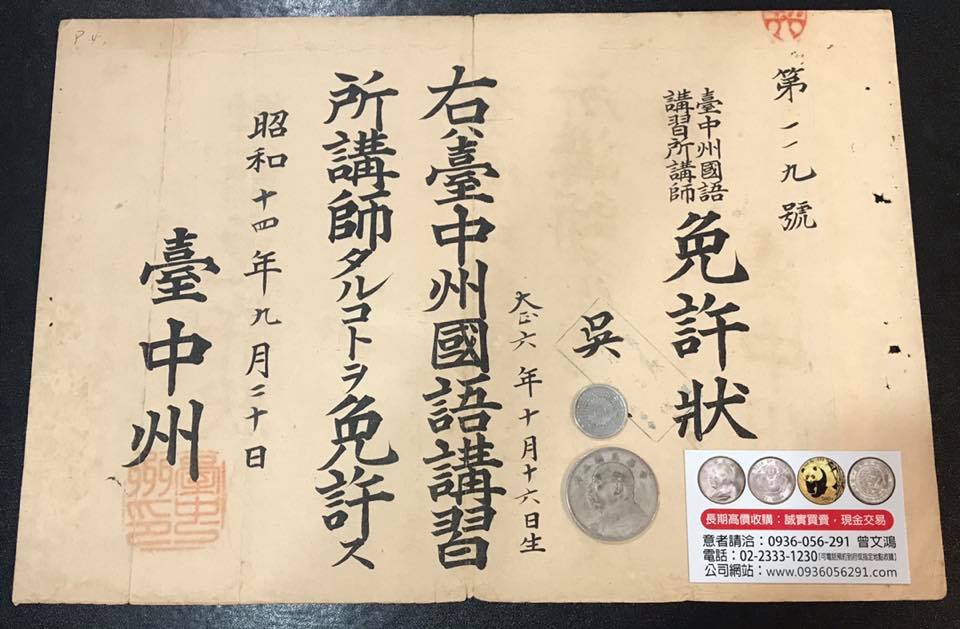 第一一九號
臺中州國語
講習所講師
免許狀
吳
大正六年十月十六日生
右ハ臺中州國語講習
所講師タルコトヲ免許ス
昭和十四年九月二十日
臺中州
P.4.
長期高價收購：誠實買賣，現金交易
意者請洽：0936-056-291 曾文鴻
電話：02-2333-1230[可電話預約到府或指定地點收購]
公司網站：www.0936056291.com